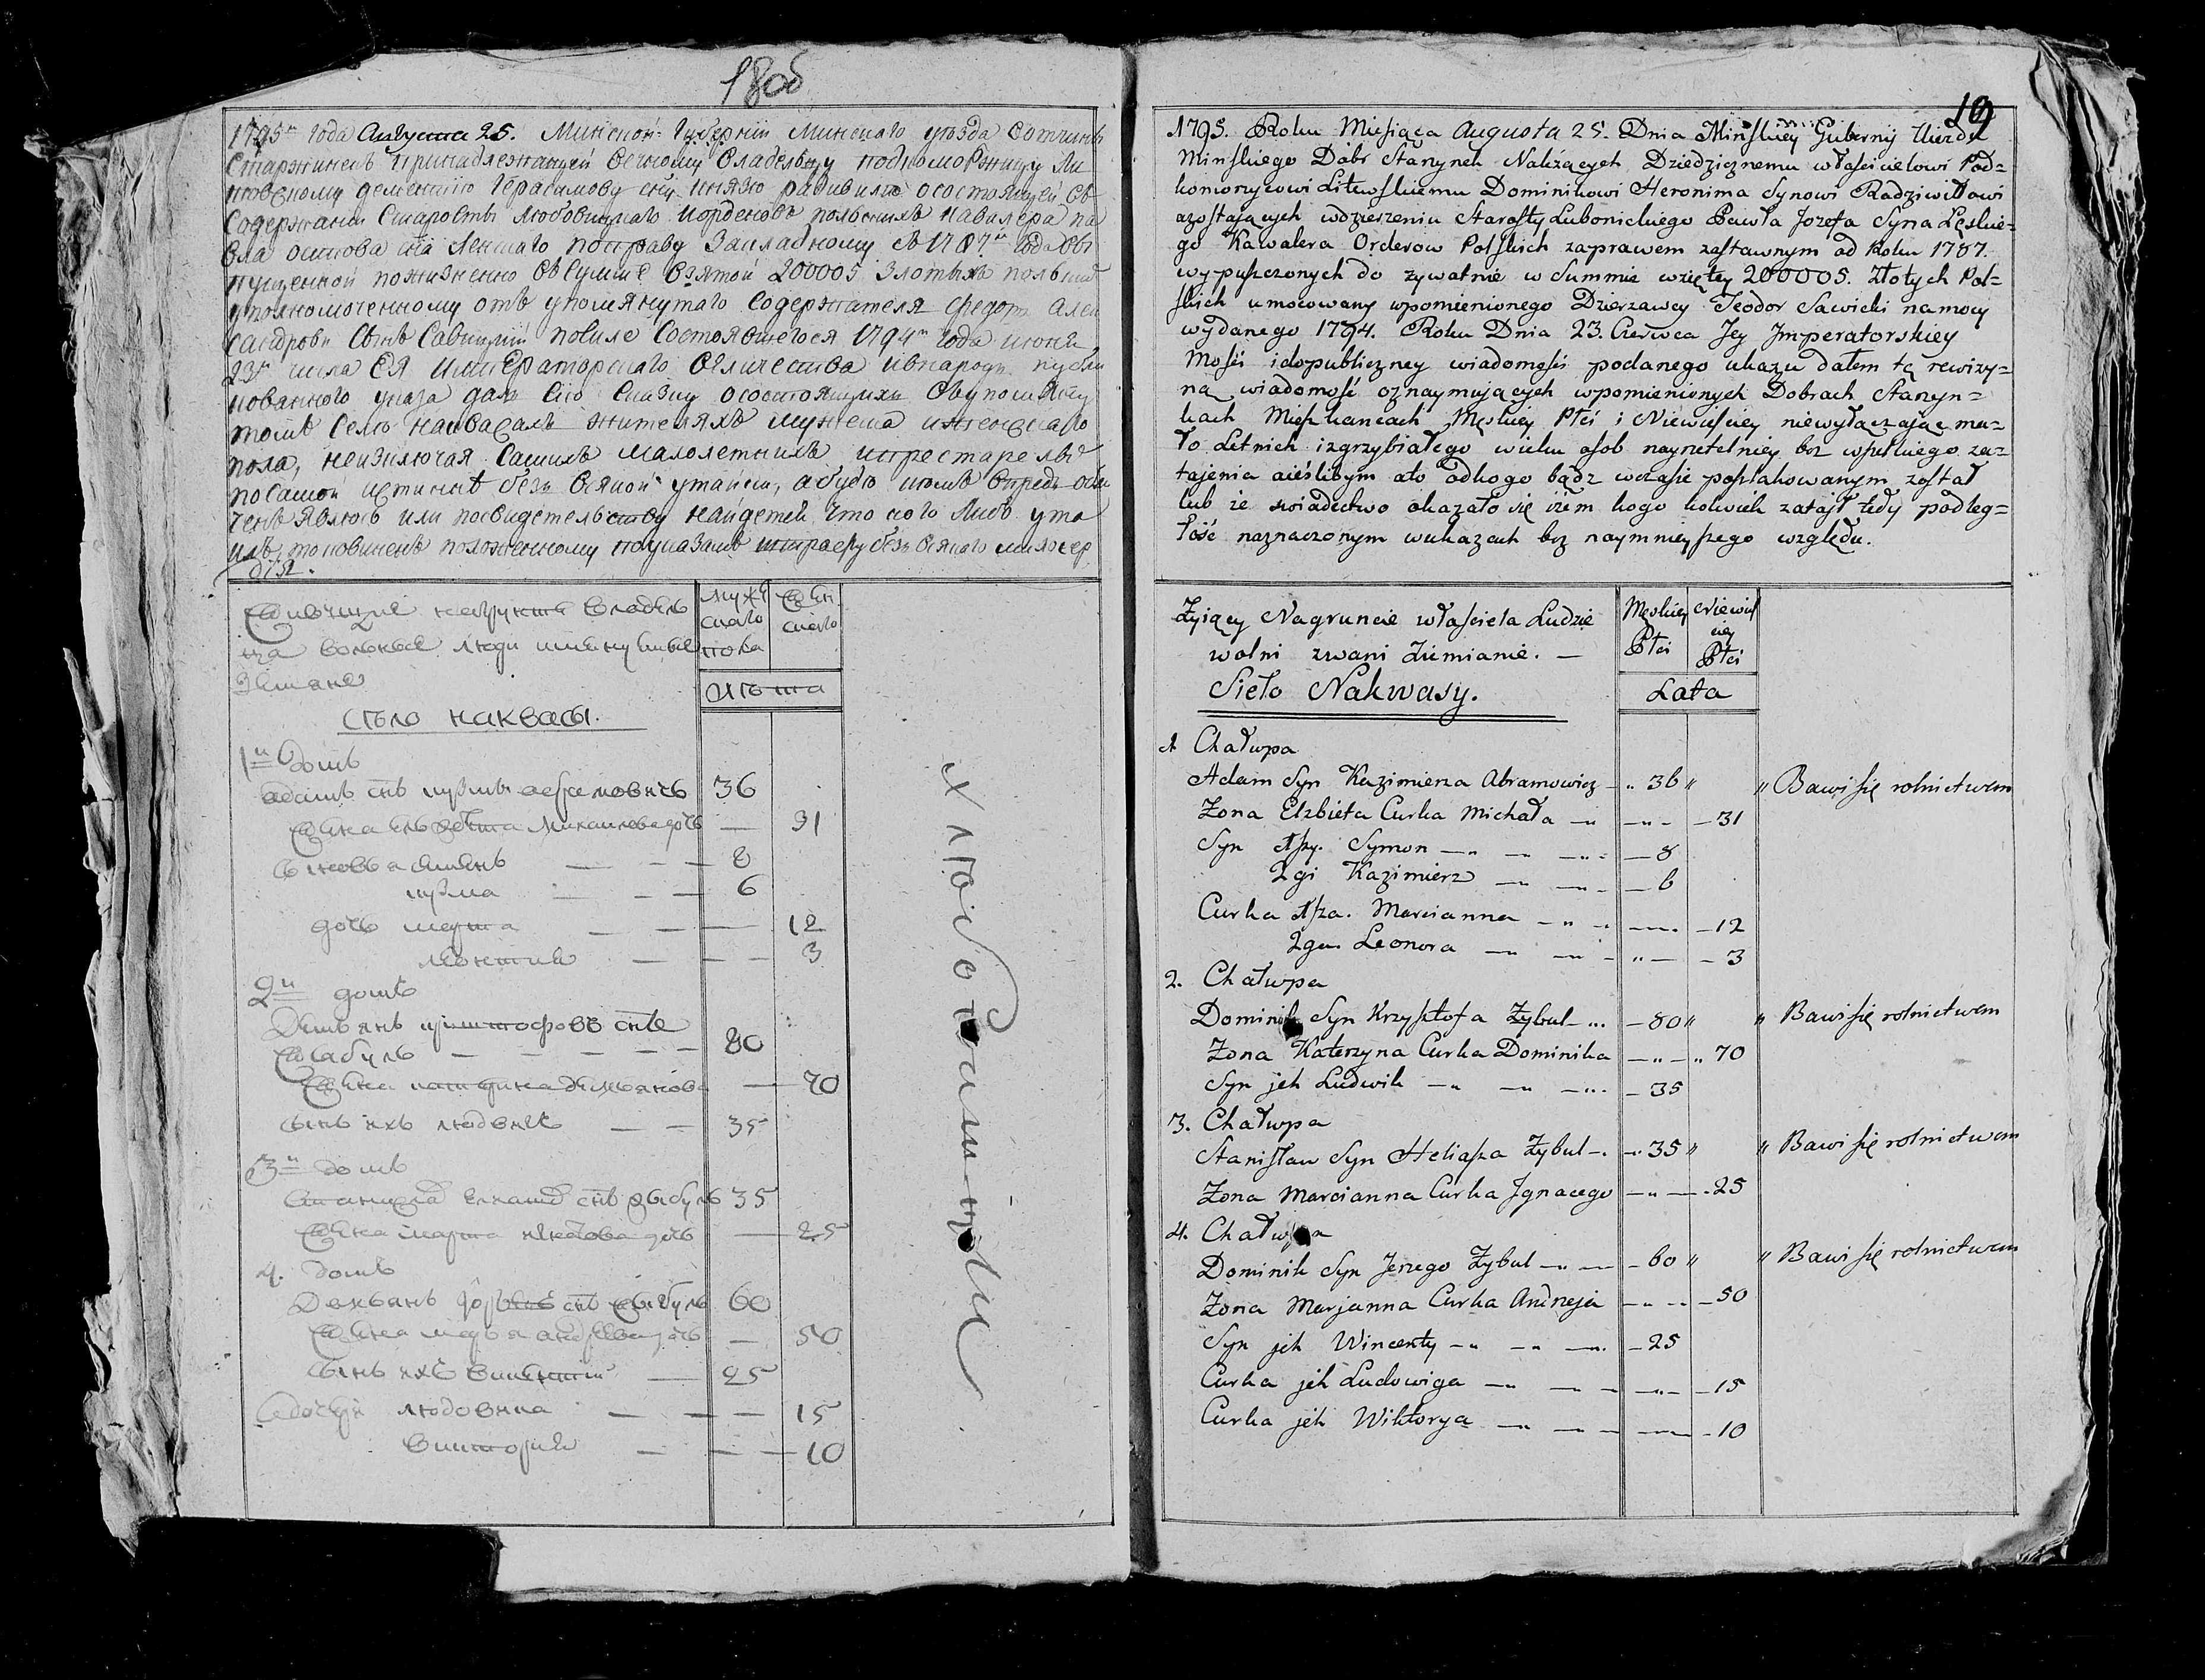 18об
1795го года Августа 25. Минской Губернии Минского уезда Вотчины
Старжинекъ принадлежащей вечному владельцу подкоморжицу Ли
товскому
Содержании Старосты Любовицкаго и орденовъ польскихъ кавалера Па
вла
пущенной пожизненно въ сумме взятой 200005 злотыхъ польских
уполномоченному отъ упомянутаго содержателя Федоръ Алек
сандровъ сынъ Савицкий по силе состоявшегося 1794го года июня
23го числа Ея Императорскаго величества и въ народъ публи
кованного указа далъ сию сказку о состоящихъ въ упомяну
томъ селе Наквасахъ жителяхъ мужеска и женскаго
пола, неизключая самихъ малолетнихъ и престарелыхъ
по самой истинне безъ всякой утайки, а буде
ченъ явлюсь или по свидетельству найдется что кого либо ута
илъ, то повиненъ положенному по указамъ штрафу безъ всякаго милосер
дия.
Живущие на грунте владель
ца вольные люди именуемые
Земяне
муже
скаго
пола
жен
скаго
лѣта
село наквасы.
1й домъ
адамъ снъ кузмы абрамовичъ 36
Жена елзбета Михаилова дочь — 31
8
кузма — 6
дочь марта — 12
3
2й домъ
Демьянъ криштофовъ снъ
Жабуль — 80
Жена катерина демьянова — 70
сынъ ихъ людвикъ — 35
3й домъ
35
Жена марта дочь — 25
4. домъ
Демьянъ снъ 60
Жена дочь — 50
сынъ ихъ викентий — 25
людовика — 15
виктория — 10
хлѣбопашцы
19
1795. Roku Miesiąca Augusta 25. Dnia Minskiey Gubernij Uiezdu
Minskiego Dobr Starynek Należących Dziedzicznemu właścicielowi Pod=
komorzycowi Litewskiemu Dominikowi Heronima Synowi Radziwiłowi
azostaiących wdzierzeniu Starosty Lubonickiego Pawła Jozefa Syna Łęskie=
go Kawalera Orderow Polskich zaprawem zastawnym od Roku 1787.
wypuszczonych do zywatnie w Summie wziętey 200005. Złotych Pol=
skich umocowany wpomienionego Dzierzawcy Teodor Sawicki namocy
wydanego 1794. Roku Dnia 23. Czerwca Jey Jmperatorskiey
Mości idopubliczney wiadomości podanego ukazu dałem tę rewizy=
ną wiadomość oznaymuiących wpomienionych Dobrach Staryn=
kach Mieszkancach Męskiey Płci i Niewieściey niewyłączaiąc ma=
ło Letnich izgrzybiałego wieku osob nayrzetelniey bez wszelkiego za=
taienia aieślibym ato odkogo bądz wczasie poszlakowanym został
lub że swiadectwo okazało się iżem kogo kolwiek zataił tedy podleg=
łość naznaczonym wukazach bez naymnieyszego względu.
Żyiący Nagruncie właściciela Ludzie
wolni zwani Ziemianie. —
Sieło Nakwasy.
Męskiey
Płci
Niewieś
ciey
Płci
Lata
1 Chałupa
Adam Syn Kazimierza Abramowicz — 36 " " Bawi się rolnictwem
Żona Elzbieta Curka Michała — 31
Syn 1szy. Symon — 8
2gi Kazimierz — 6
Curka 1sza. Marcianna — 12
2ga. Leonora — 3
2. Chałupa
Dominik Syn Krzysztofa Zybul — 80 " " Bawi się rolnictwem
Żona Katerzyna Curka Dominika — 70
Syn jch Ludwik — 35
3. Chałupa
Stanisław Syn Heliasza Zybul — 35 " " Bawi się rolnictwem
Żona Marcianna Curka Jgnacego — 25
4. Chałupa
Dominik Syn Jerzego Zybul — 60 " " Bawi się rolnictwem
Żona Marjanna Curka Andrzeja — 50
Syn jch Wincenty — 25
Curka jch Ludowiga — 15
Curka jch Wiktorya — 10